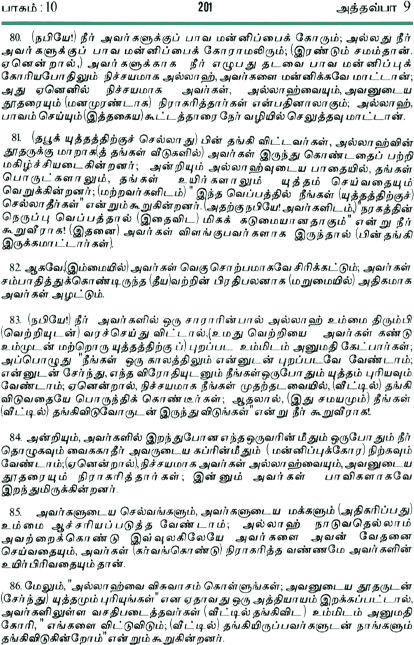 பாகம் : 10 201 அத்தவ்பா 9
80. (நபியே!) நீர் அவர்களுக்குப் பாவ மன்னிப்பைக் கோரும்; அல்லது நீர்
அவர்களுக்குப் பாவ மன்னிப்பைக் கோராமலிரும்; (இரண்டும் சமம்தான்.
ஏனென்றால்,) அவர்களுக்காக நீர் எழுபது தடவை பாவ மன்னிப்புக்
கோரியபோதிலும் நிச்சயமாக அல்லாஹ், அவர்களை மன்னிக்கவே மாட்டான்;
அது ஏனெனில் நிச்சயமாக அவர்கள், அல்லாஹ்வையும், அவனுடைய
தூதரையும் (மனமுரண்டாக) நிராகரித்தார்கள் என்பதினாலாகும்; அல்லாஹ்,
பாவம் செய்யும் (இத்தகைய) கூட்டத்தாரை நேர் வழியில் செலுத்தவு மாட்டான்.
81. (தபூக் யுத்தத்திற்குச் செல்லாது) பின் தங்கி விட்டவர்கள், அல்லாஹ்வின்
தூதருக்கு மாறாகத் தங்கள் வீடுகளில்) அவர்கள் இருந்து கொண்டதைப் பற்றி
மகிழ்ச்சியடைகின்றனர்; அன்றியும் அல்லாஹ்வுடைய பாதையில், தங்கள்
பொருட்களாலும், தங்கள் உயிர்களாலும் யுத்தம் செய்வதையும்
வெறுக்கின்றனர்; (மற்றவர்களிடம்) "இந்த வெப்பத்தில் நீங்கள் (யுத்தத்திற்குச்)
செல்லாதீர்கள்" என்றும் கூறுகின்றனர். அதற்கு நபியே! அவர்களிடம், "நரகத்தின்
நெருப்பு வெப்பத்தால் (இதைவிட) மிகக் கடுமையானதாகும்" என்று நீர்
கூறுவீராக! (இதனை) அவர்கள் விளங்குபவர்களாக இருந்தால் (பின் தங்கி
இருக்கமாட்டார்கள்).
82. ஆகவே, (இம்மையில்) அவர்கள் வெகு சொற்பமாகவே சிரிக்கட்டும்; அவர்கள்
சம்பாதித்துக்கொண்டிருந்த (தீய)வற்றின் பிரதிபலனாக (மறுமையில்) அதிகமாக
அவர்கள் அழட்டும்.
83. (நபியே!) நீர் அவர்களில் ஒரு சாராரின்பால் அல்லாஹ் உம்மை திரும்பி
(வெற்றியுடன்) வரச்செய்து விட்டால்,(உமது வெற்றியை அவர்கள் கண்டு
உம்முடன் மற்றொரு யுத்தத்திற்குப்) புறப்பட உம்மிடம் அனுமதி கேட்பார்கள்;
அப்பொழுது "நீங்கள் ஒரு காலத்திலும் என்னுடன் புறப்படவே வேண்டாம்;
என்னுடன் சேர்ந்து, எந்த விரோதியுடனும் நீங்கள் ஒருபோதும் யுத்தம் புரியவும்
வேண்டாம்; ஏனென்றால், நிச்சயமாக நீங்கள் முதற்தடவையில், (வீட்டில்) தங்கி
விடுவதையே பொருந்திக் கொண்டீர்கள்; ஆதலால், (இது சமயமும்) நீங்கள்
(வீட்டில்) தங்கிவிடுவோருடன் இருந்து விடுங்கள்" என்று நீர் கூறுவீராக!.
84. அன்றியும், அவர்களில் இறந்துபோன எந்த ஒருவரின் மீதும் ஒருபோதும் நீர்
தொழுகவும் வைககாதீர் அவருடைய கப்ரின்மீதும் (மன்னிப்புக்கோர) நிற்கவும்
வேண்டாம்;(ஏனென்றால்), நிச்சயமாக அவர்கள் அல்லாஹ்வையும், அவனுடைய
தூதரையும் நிராகரித்தார்கள்; இன்னும் அவர்கள் பாவிகளாகவே
இறந்துமிருக்கின்றனர்.
85. அவர்களுடைய செல்வங்களும், அவர்களுடைய மக்களும் (அதிகரிப்பது)
உம்மை ஆச்சரியப்படுத்த வேண்டாம்; அல்லாஹ் நாடுவதெல்லாம்
அவற்றைக்கொண்டு இவ்வுலகிலேயே அவர்களை அவன் வேதனை
செய்வதையும், அவர்கள் (கர்வங்கொண்டு) நிராகரித்த வண்ணமே அவர்களின்
உயிர்பிரிவதையும் தான்.
86. மேலும், "அல்லாஹ்வை விசுவாசம் கொள்ளுங்கள்; அவனுடைய தூதருடன்
(சேர்ந்து) யுத்தமும் புரியுங்கள்" என ஏதாவது ஒரு அத்தியாயம் இறக்கப்பட்டால்,
அவர்களிலுள்ள வசதிபடைத்தவர்கள் (வீட்டில் தங்கிவிட) உம்மிடம் அனுமதி
கோரி, " எங்களை விட்டுவிடும்; (வீட்டில்) தங்கியிருப்பவர்களுடன் நாங்களும்
தங்கிவிடுகின்றோம்" என்றும் கூறுகின்றனர்.